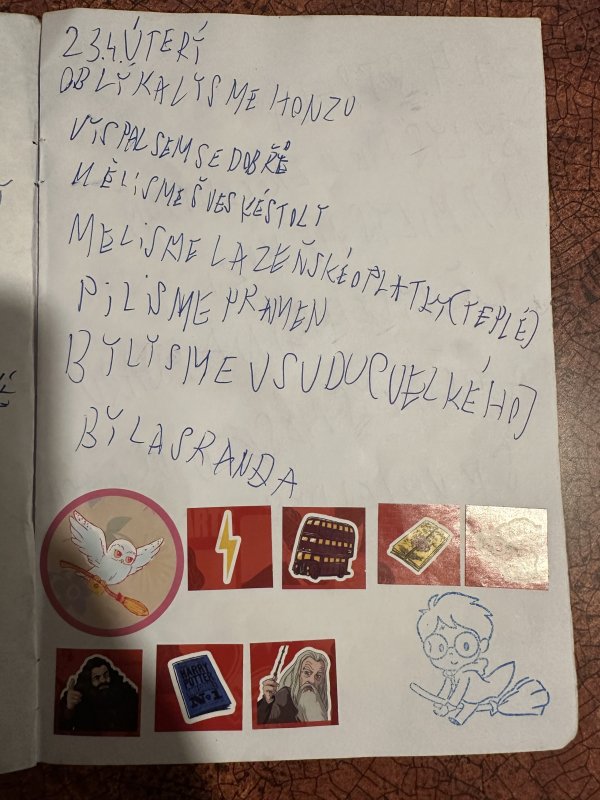 23.4. ÚTERÝ
OBLÝKALY SME HONZU
VISPAL SEM SE DOBŘE
MĚLI SME ŠVESKÉ STOLY
MELI SME LAZEŇSKÉ OPLATKY (TEPLÉ)
PILI SME PRAMEN
BYLY SME V SUDU (VELKÉHO)
BÝLA SRANDA
HARRY
POTTER
Nº1